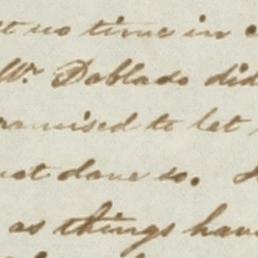 t no time in
Mr. Doblado did
romised to let
not done so.
as things hav